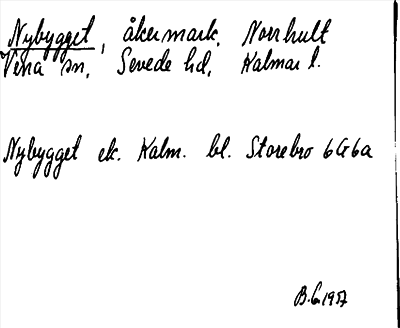 Nybygget, åkermark, Norrhult
Vena sn, Sevede hd, Kalmar l.
Nybygget ek. Kalm. bl. Storebro 6G6a
B.G. 1957